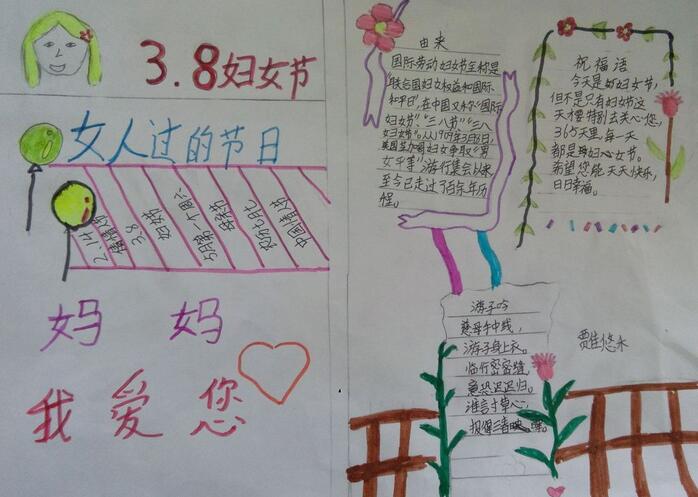 3.8妇女节
女人过的节日
2.14
情人节
3.8
妇女节
5月第一个周六
母亲节
农历七月七
中国情人节
妈 妈
我 爱 您
由来
国际劳动妇女节全称是
"联合国妇女权益和国际
和平日",在中国又称"国际
妇女节"、"三八节""三八
妇女节"。从1909年3月8日,
美国芝加哥妇女争取"男
女平等"游行集会以来
至今已走过了百年年历
程。
祝福语
今天是妇女节,
但不是只有妇女节这
天才特别去关心您,
365天里,每一天
都是妇女节。
希望您能天天快乐,
日日幸福。
游子吟
慈母手中线,
游子身上衣。
临行密密缝,
意恐迟迟归。
谁言寸草心,
报得三春晖。
贾佳悠永